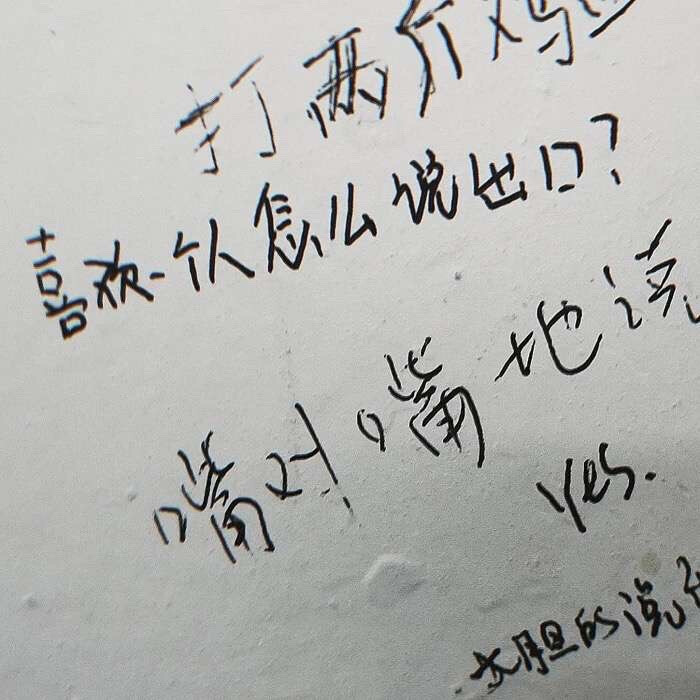 打两个鸡
喜欢一个人怎么说出口?
嘴对嘴地说
yes.
大胆的说